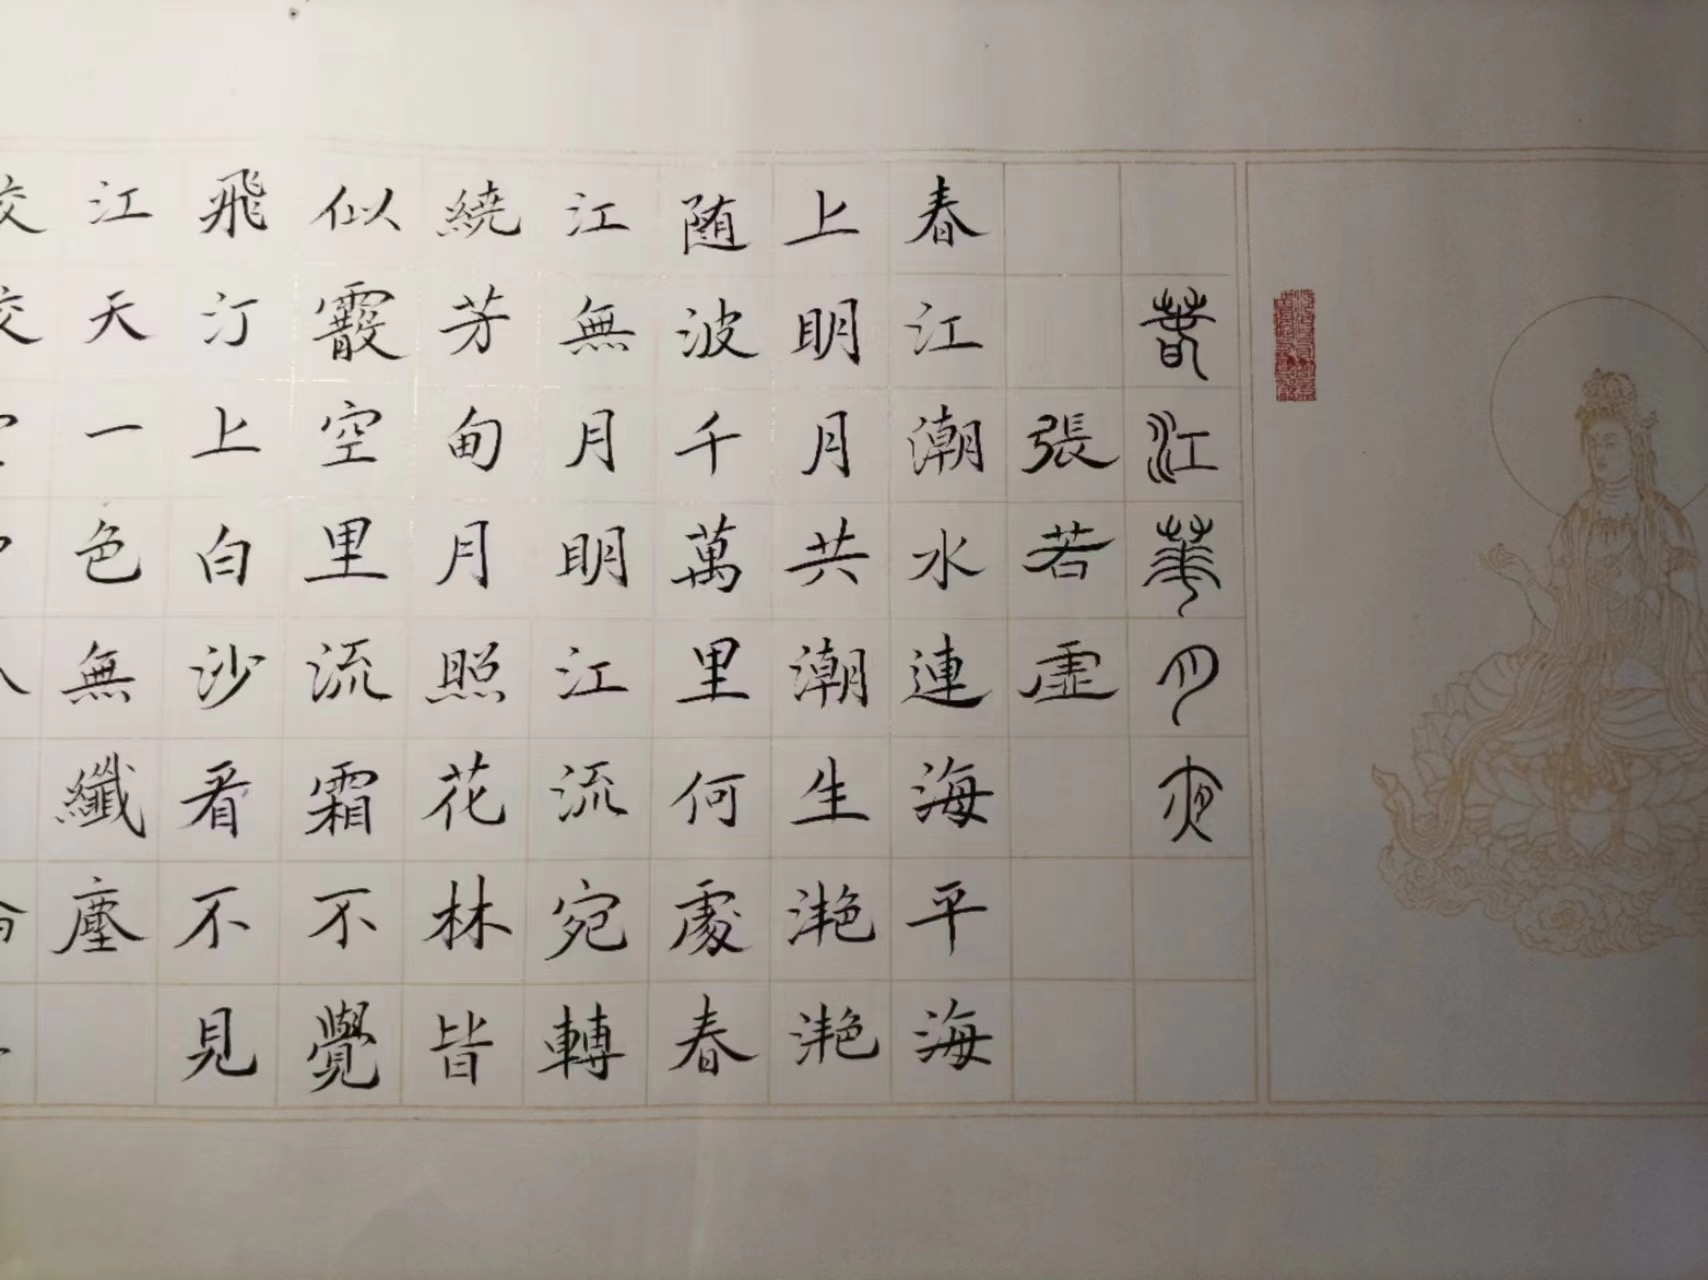 春江華月夜
張若虛
春江潮水連海平海
上明月共潮生滟滟
随波千萬里何處春
江無月明江流宛轉
繞芳甸月照花林皆
似霰空里流霜不覺
飛汀上白沙看不見
江天一色無纖塵